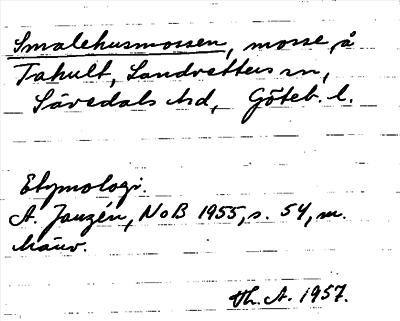 Smalehusmossen, mosse, å
Tahult, Landvetters sn,
Sävedals hd, Göteb. l.
Etymologi.
A. Janzén, NoB 1955, s. 54, m.
hänv.
Th. A. 1957.